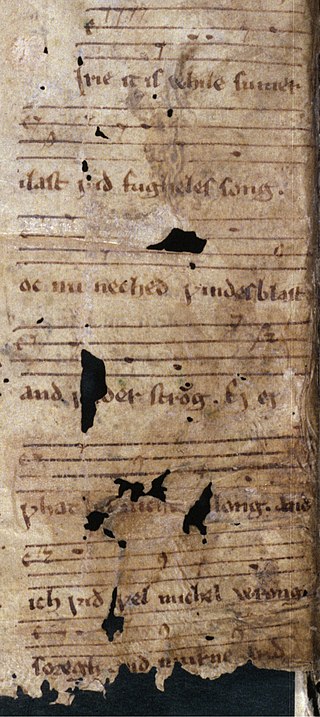 irie it is ƿhile sumer
ilast ƿid fugheles song.
oc nu necheð ƿindes blast
and ƿeder strōg. Ej ej
ƿhat nicht long. and
ich ƿid ƿel michel wrong.
soregh and murne and